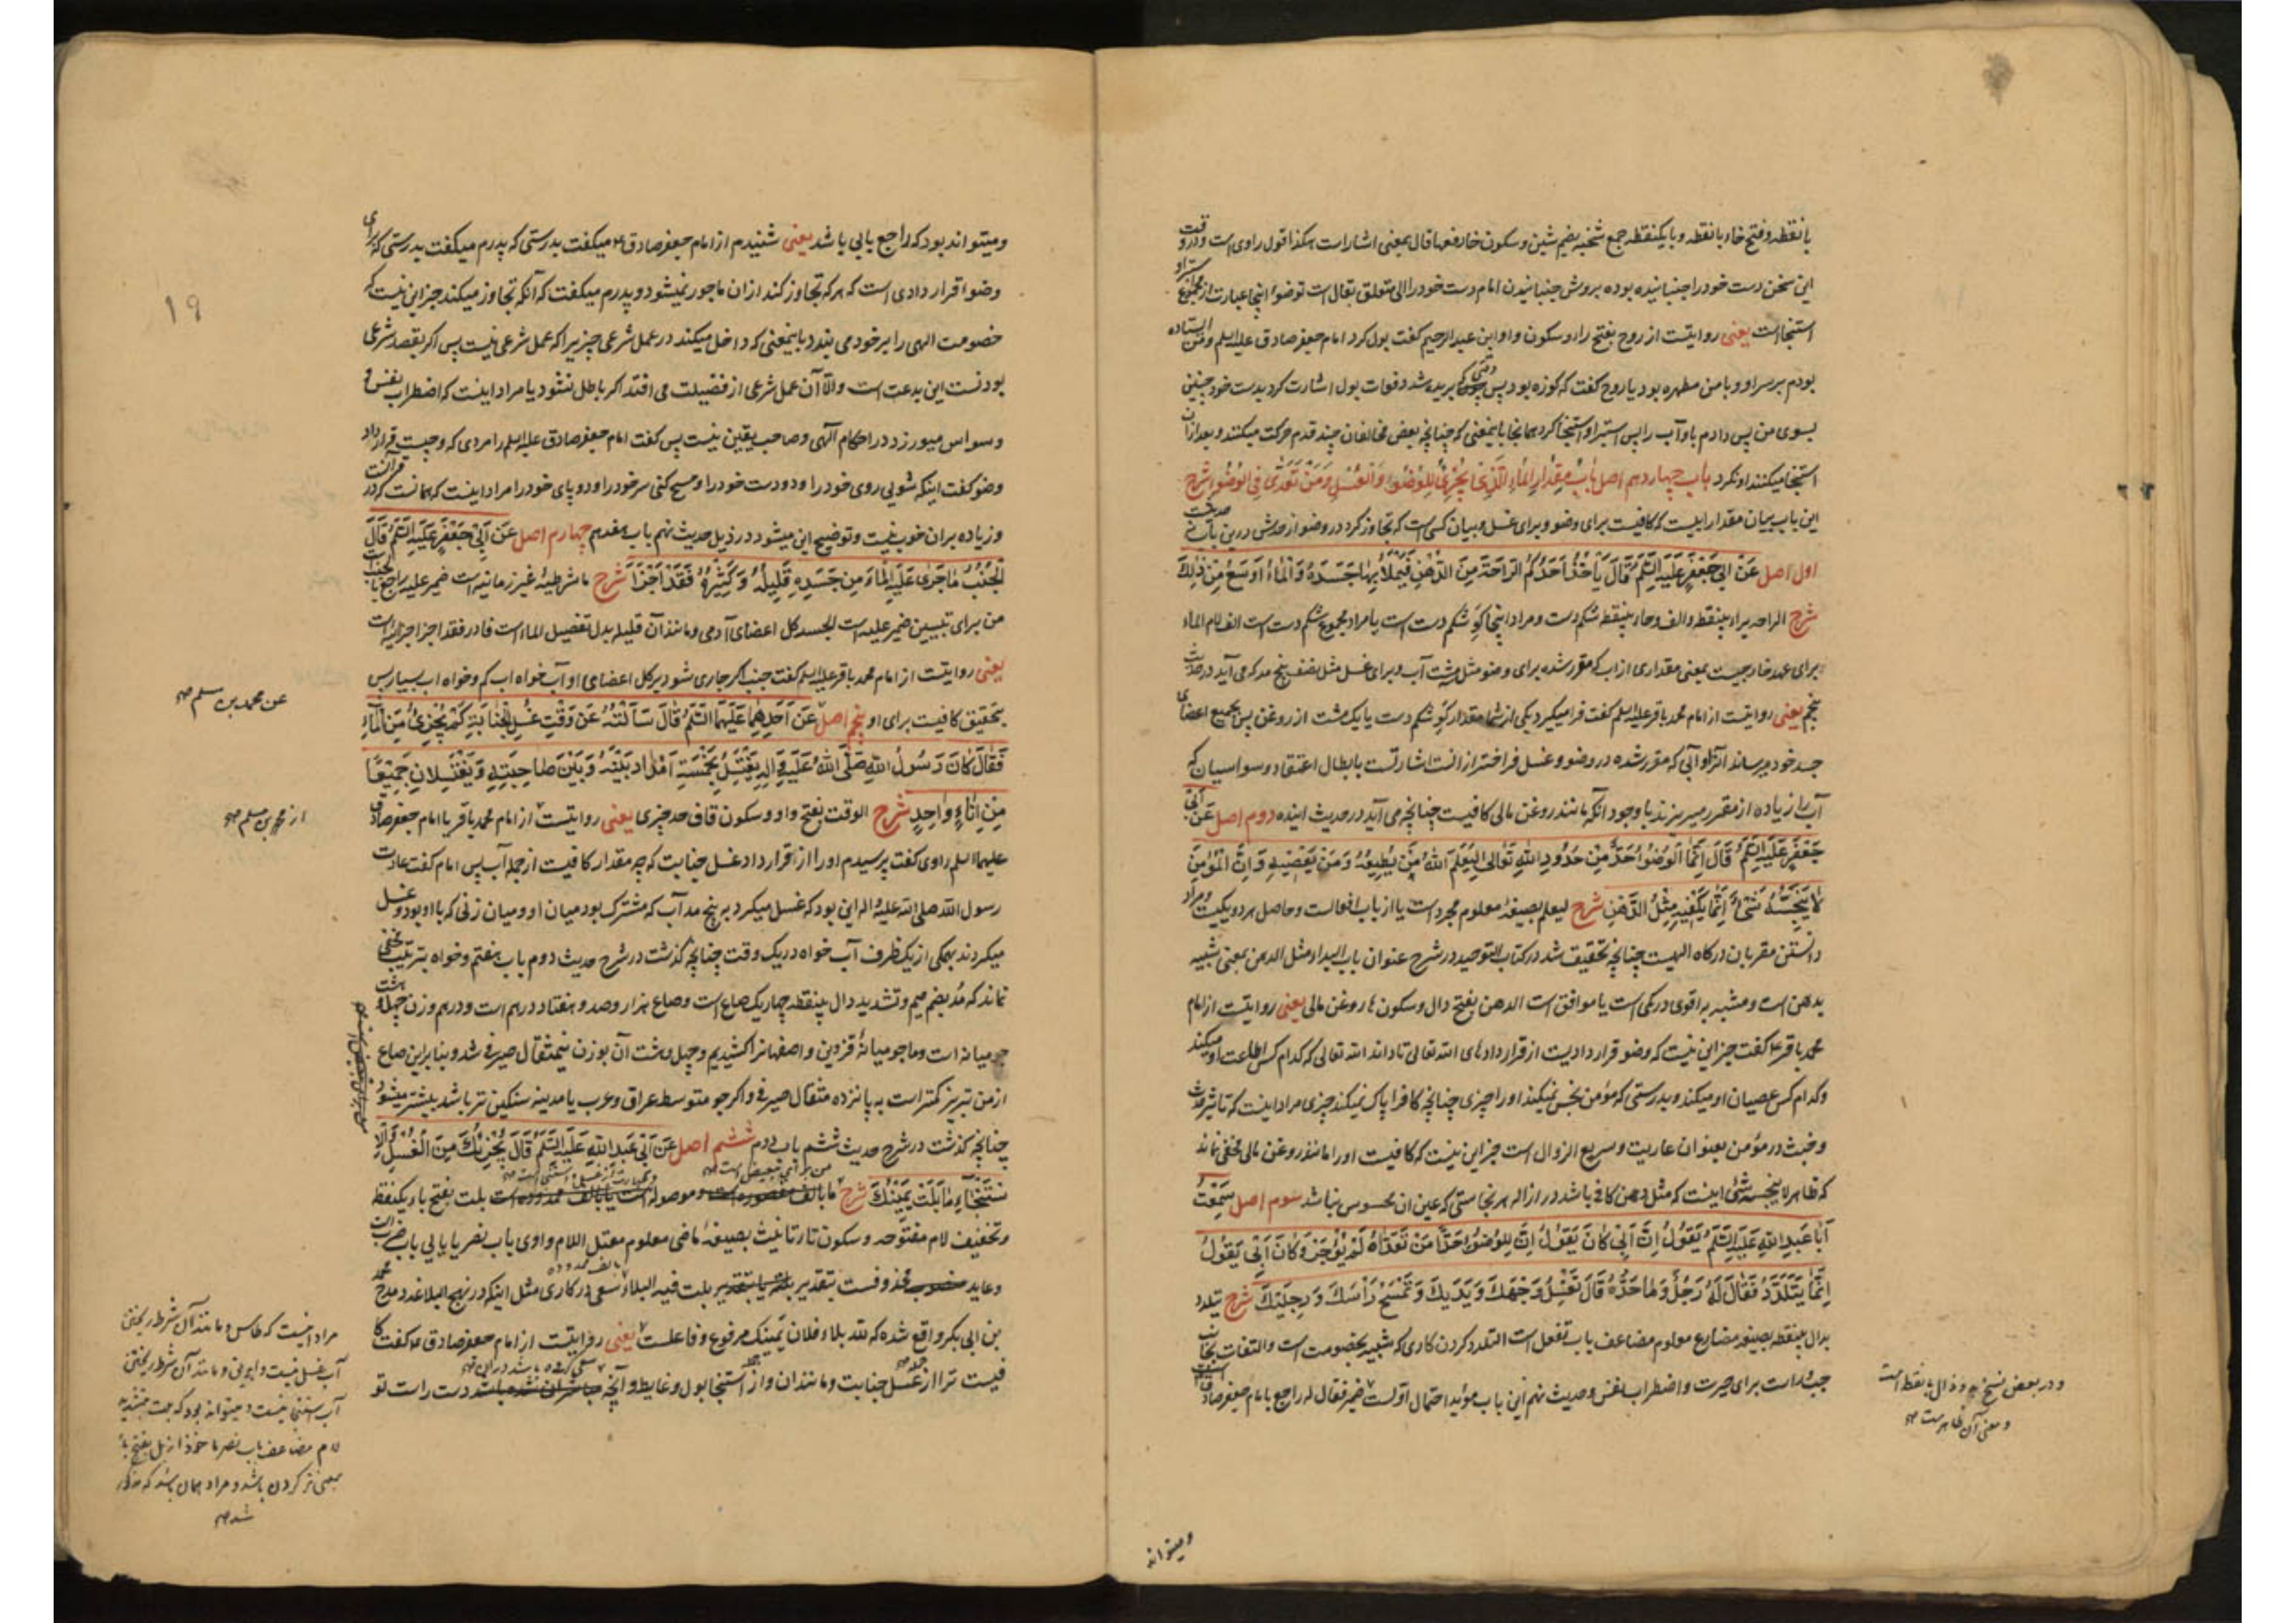 بانقطه و فتح خاء بانقطه و بایکنقطه جمع شخبه بضم شین و سکون خا دفعها قال بمعنی اشار است هکذا قول راوی است و در وقت
این سخن دست خود را جنبانیده بوده بروش جنبانیدن امام دست خود را الی متعلق بقال است توضوا اینجا عبارت از مجموع
استنجا است یعنی روایتست از روح بفتح را و سکون واو ابن عبد الرحیم گفت بول کرد امام جعفر صادق علیه السلم و من ایستاده
بودم بر سر او و با من مطهره بود یا روح گفت که کوزه بود پس بریده شد دفعات بول اشارت کرد بدست خود چنین
بسوی من پس دادم باو آب را پس استبرا و استنجا کرد همانجا باینمعنی که چنانچه بعض مخالفان چند قدم حرکت میکنند و بعد ازان
استنجا میکنند او نکرد باب چهاردهم اصل بَابُ مِقْدَارِ الْمَاءِ الَّذِي يُجْزِئُ لِلْوُضُوءِ وَالْغُسْلِ وَمَنْ تَعَدَّى فِي الْوُضُوءِ شرح
این باب بیان مقدار آبیست که کافیست برای وضو و برای غسل و بیان کسی است که تجاوز کرد در وضو از حدش درین باب نه حدیث است
اول اصل عَنْ أَبِي جَعْفَرٍ عَلَيْهِ السَّلَمُ قَالَ يَأْخُذُ أَحَدُكُمُ الرَّاحَةَ مِنَ الدُّهْنِ فَيَمْلَأُ بِهَا جَسَدَهُ وَالْمَاءُ أَوْسَعُ مِنْ ذَلِكَ
شرح الراحه براء بینقطه و الف و حاء بینقطه شکم دست و مراد اینجا گَوِ شکم دست است یا مراد مجموع شکم دست است الف لام الماء
برای عهد خارجیست بمعنی مقداری از آب که مقرر شده برای وضو مثل مشت آب و برای غسل مثل نصف پنج مد که می آید در حدیث
پنجم یعنی روایتست از امام محمد باقر علیه السلم گفت فرا میگیرد یکی از شما مقدار گَوِ شکم دست یا یک مشت از روغن پس بجمیع اعضای
جسد خود میرساند آنرا و آبی که مقرر شده در وضو و غسل فراختر ازانست اشارتست بابطال اعتقاد وسواسیان که
آب را زیاده از مقرر میریزند با وجود آنکه مانند روغن مالی کافیست چنانچه می آید در حدیث آینده دوم اصل عَنْ أَبِي
جَعْفَرٍ عَلَيْهِ السَّلَمُ قَالَ إِنَّمَا الْوُضُوءُ حَدٌّ مِنْ حُدُودِ اللهِ تَعَالَى لِيَعْلَمَ اللهُ مَنْ يُطِيعُهُ وَمَنْ يَعْصِيهِ وَإِنَّ الْمُؤْمِنَ
لَا يُنَجِّسُهُ شَيْءٌ إِنَّمَا يَكْفِيهِ مِثْلُ الدَّهْنِ شرح لیعلم بصیغه معلوم مجرد است یا از باب افعالست و حاصل هر دو یکیست و مراد
دانستن مقربان درگاه الهیست چنانچه تحقیق شد در کتاب التوحید در شرح عنوان باب البداء و مثل الدهن بمعنی شبیه
بدهن است و مشبه به اقوی در کمی است یا موافق است الدهن بفتح دال و سکون ها روغن مالی یعنی روایتست از امام
محمد باقر ع گفت جز این نیست که وضو قراردادیست از قراردادهای الله تعالی تا داند الله تعالی که کدام کس اطاعت او میکند
و کدام کس عصیان او میکند و بدرستی که مؤمن نجس نمیکند او را چیزی چنانچه کافر را پاک نمیکند چیزی مراد اینست که تاثیر حدث
و خبث در مؤمن بعنوان عاریت و سریع الزوال است جز این نیست که کافیست او را مانند روغن مالی مخفی نماند
که ظاهر لا ینجسه شئ اینست که مثل دهن کافی باشد در ازاله هر نجاستی که عین ان محسوس نباشد سوم اصل سَمِعْتُ
أَبَا عَبْدِ اللهِ عَلَيْهِ السَّلَمُ يَقُولُ إِنَّ أَبِي كَانَ يَقُولُ إِنَّ لِلْوُضُوءِ حَدًّا مَنْ تَعَدَّاهُ لَمْ يُؤْجَرْ وَكَانَ أَبِي يَقُولُ
إِنَّمَا يَتَلَدَّدُ فَقَالَ لَهُ رَجُلٌ وَمَا حَدُّهُ قَالَ تَغْسِلُ وَجْهَكَ وَيَدَيْكَ وَتَمْسَحُ رَأْسَكَ وَرِجْلَيْكَ شرح یتلدد
بدال بینقطه بصیغه مضارع معلوم مضاعف باب تفعل است التلدد کردن کاری که شبیه بخصومت است و التفات بجانب
چپ و راست برای حیرت و اضطراب نفس و حدیث نهم این باب مؤید احتمال اولست ضمیر فقال له راجع بامام جعفر صادق
و در بعض نسخ بدو ذال بانقطه است
و معنی آن ظاهرست
و میتواند
و میتواند بود که راجع بابی باشد یعنی شنیدم از امام جعفر صادق ع میگفت بدرستی که پدرم میگفت بدرستی که برای
وضو قراردادی است که هر که تجاوز کند ازان ماجور نمیشود و پدرم میگفت که آنکه تجاوز میکند جز این نیست که
خصومت الهی را بر خود می بندد باینمعنی که داخل میکند در عمل شرعی چیزیرا که عمل شرعی نیست پس اگر بقصد شرعی
بودنست این بدعت است والا آن عمل شرعی از فضیلت می افتد اگر باطل نشود یا مراد اینست که اضطراب نفس و
وسواس میورزد در احکام الهی و صاحب یقین نیست پس گفت امام جعفر صادق علیه السلم را مردی که و چیست قرارداد
وضو گفت اینکه شویی روی خود را و دو دست خود را و مسح کنی سر خود را و دو پای خود را مراد اینست که همانست که در قرآنست
و زیاده بران خوب نیست و توضیح این میشود در ذیل حدیث نهم باب هفدهم چهارم اصل عَنْ أَبِي جَعْفَرٍ عَلَيْهِ السَّلَمُ قَالَ
الْجُنُبُ مَا جَرَى عَلَيْهِ الْمَاءُ مِنْ جَسَدِهِ قَلِيلُهُ وَكَثِيرُهُ فَقَدْ أَجْزَأَ شرح ما شرطیه غیر زمانیه است ضمیر علیه راجع بما
من برای تبیین ضمیر علیه است الجسد کل اعضای آدمی و مانند آن قلیله بدل تفصیل الماء است فا در فقد اجزا جزائیه است
یعنی روایتست از امام محمد باقر علیه السلم گفت جنب اگر جاری شود بر کل اعضای او آب خواه اب کم و خواه اب بسیار پس
بتحقیق کافیست برای او پنجم اصل عَنْ أَحَدِهِمَا عَلَيْهِمَا السَّلَمُ قَالَ سَأَلْتُهُ عَنْ وَقْتِ غُسْلِ الْجَنَابَةِ كَمْ يُجْزِئُ مِنَ الْمَاءِ
عن محمد بن مسلم صح
فَقَالَ كَانَ رَسُولُ اللهِ صَلَّى اللهُ عَلَيْهِ وَآلِهِ يَغْتَسِلُ بِخَمْسَةِ أَمْدَادٍ بَيْنَهُ وَبَيْنَ صَاحِبَتِهِ وَيَغْتَسِلَانِ جَمِيعًا
مِنْ إِنَاءٍ وَاحِدٍ شرح الوقت بفتح واو و سکون قاف حد چیزی یعنی روایتست از امام محمد باقر یا امام جعفر صادق
از محمد بن مسلم صح
علیهما السلم راوی گفت پرسیدم او را از قرارداد غسل جنابت که چه مقدار کافیست از جمله آب پس امام گفت عادت
رسول الله صلی الله علیه و اله این بود که غسل میکرد به پنج مد آب که مشترک بود میان او و میان زنی که با او بود و غسل
میکردند همگی از یک ظرف آب خواه در یک وقت چنانچه گذشت در شرح حدیث دوم باب هفتم و خواه بترتیب مخفی
نماند که مُد بضم میم و تشدید دال بینقطه چهار یک صاع است و صاع هزار و صد و هفتاد درهم است و درهم وزن چهل و هشت
جو میانه است و ما جو میانهٔ قزوین و اصفهانرا کشیدیم و چهل و هشت آن بوزن نیمثقال صیرفی شد و بنابراین صاع
از من تبریز کمتر است به پانزده مثقال صیرفی و اگر جو متوسط عراق و عرب یا مدینه سنگین تر باشد بیشتر میشود
چنانچه گذشت در شرح حدیث ششم باب دوم ششم اصل عَنْ أَبِي عَبْدِ اللهِ عَلَيْهِ السَّلَمُ قَالَ يُجْزِئُكَ مِنَ الْغُسْلِ وَالِا
سْتِنْجَاءِ مَا بَلَّتْ يَمِينُكَ شرح من برای تبعیض است ما موصوله است بلت بفتح باء یکنقطه
و تخفیف لام مفتوحه و سکون تاء تانیث بصیغهٔ ماضی معلوم معتل اللام واوی باب نصر یا یایی باب ضرب است
و عاید محذوفست بتقدیر بلت فیه البلاء بالف ممدوده سعی در کاری مثل اینکه در نهج البلاغه در مدح محمد
بن ابی بکر واقع شده که لله بلاء فلان یمینک مرفوع و فاعلست یعنی روایتست از امام جعفر صادق ع گفت کا
فیست ترا از غسل جنابت و مانند ان و از استنجا بول و غایط و آنچه سعی کرده باشد در ان دست راست تو
مراد اینست که طاس و مانند آن شرط ریختن
آب غسل نیست و ابریق و مانند آن شرط ریختن
آب استنجا نیست و میتواند بود که بلت بتشدید
لام مضاعف باب نصر ماخوذ از بل بفتح باء
بمعنی تر کردن باشد و مراد همان باشد که مذکور
شد صح